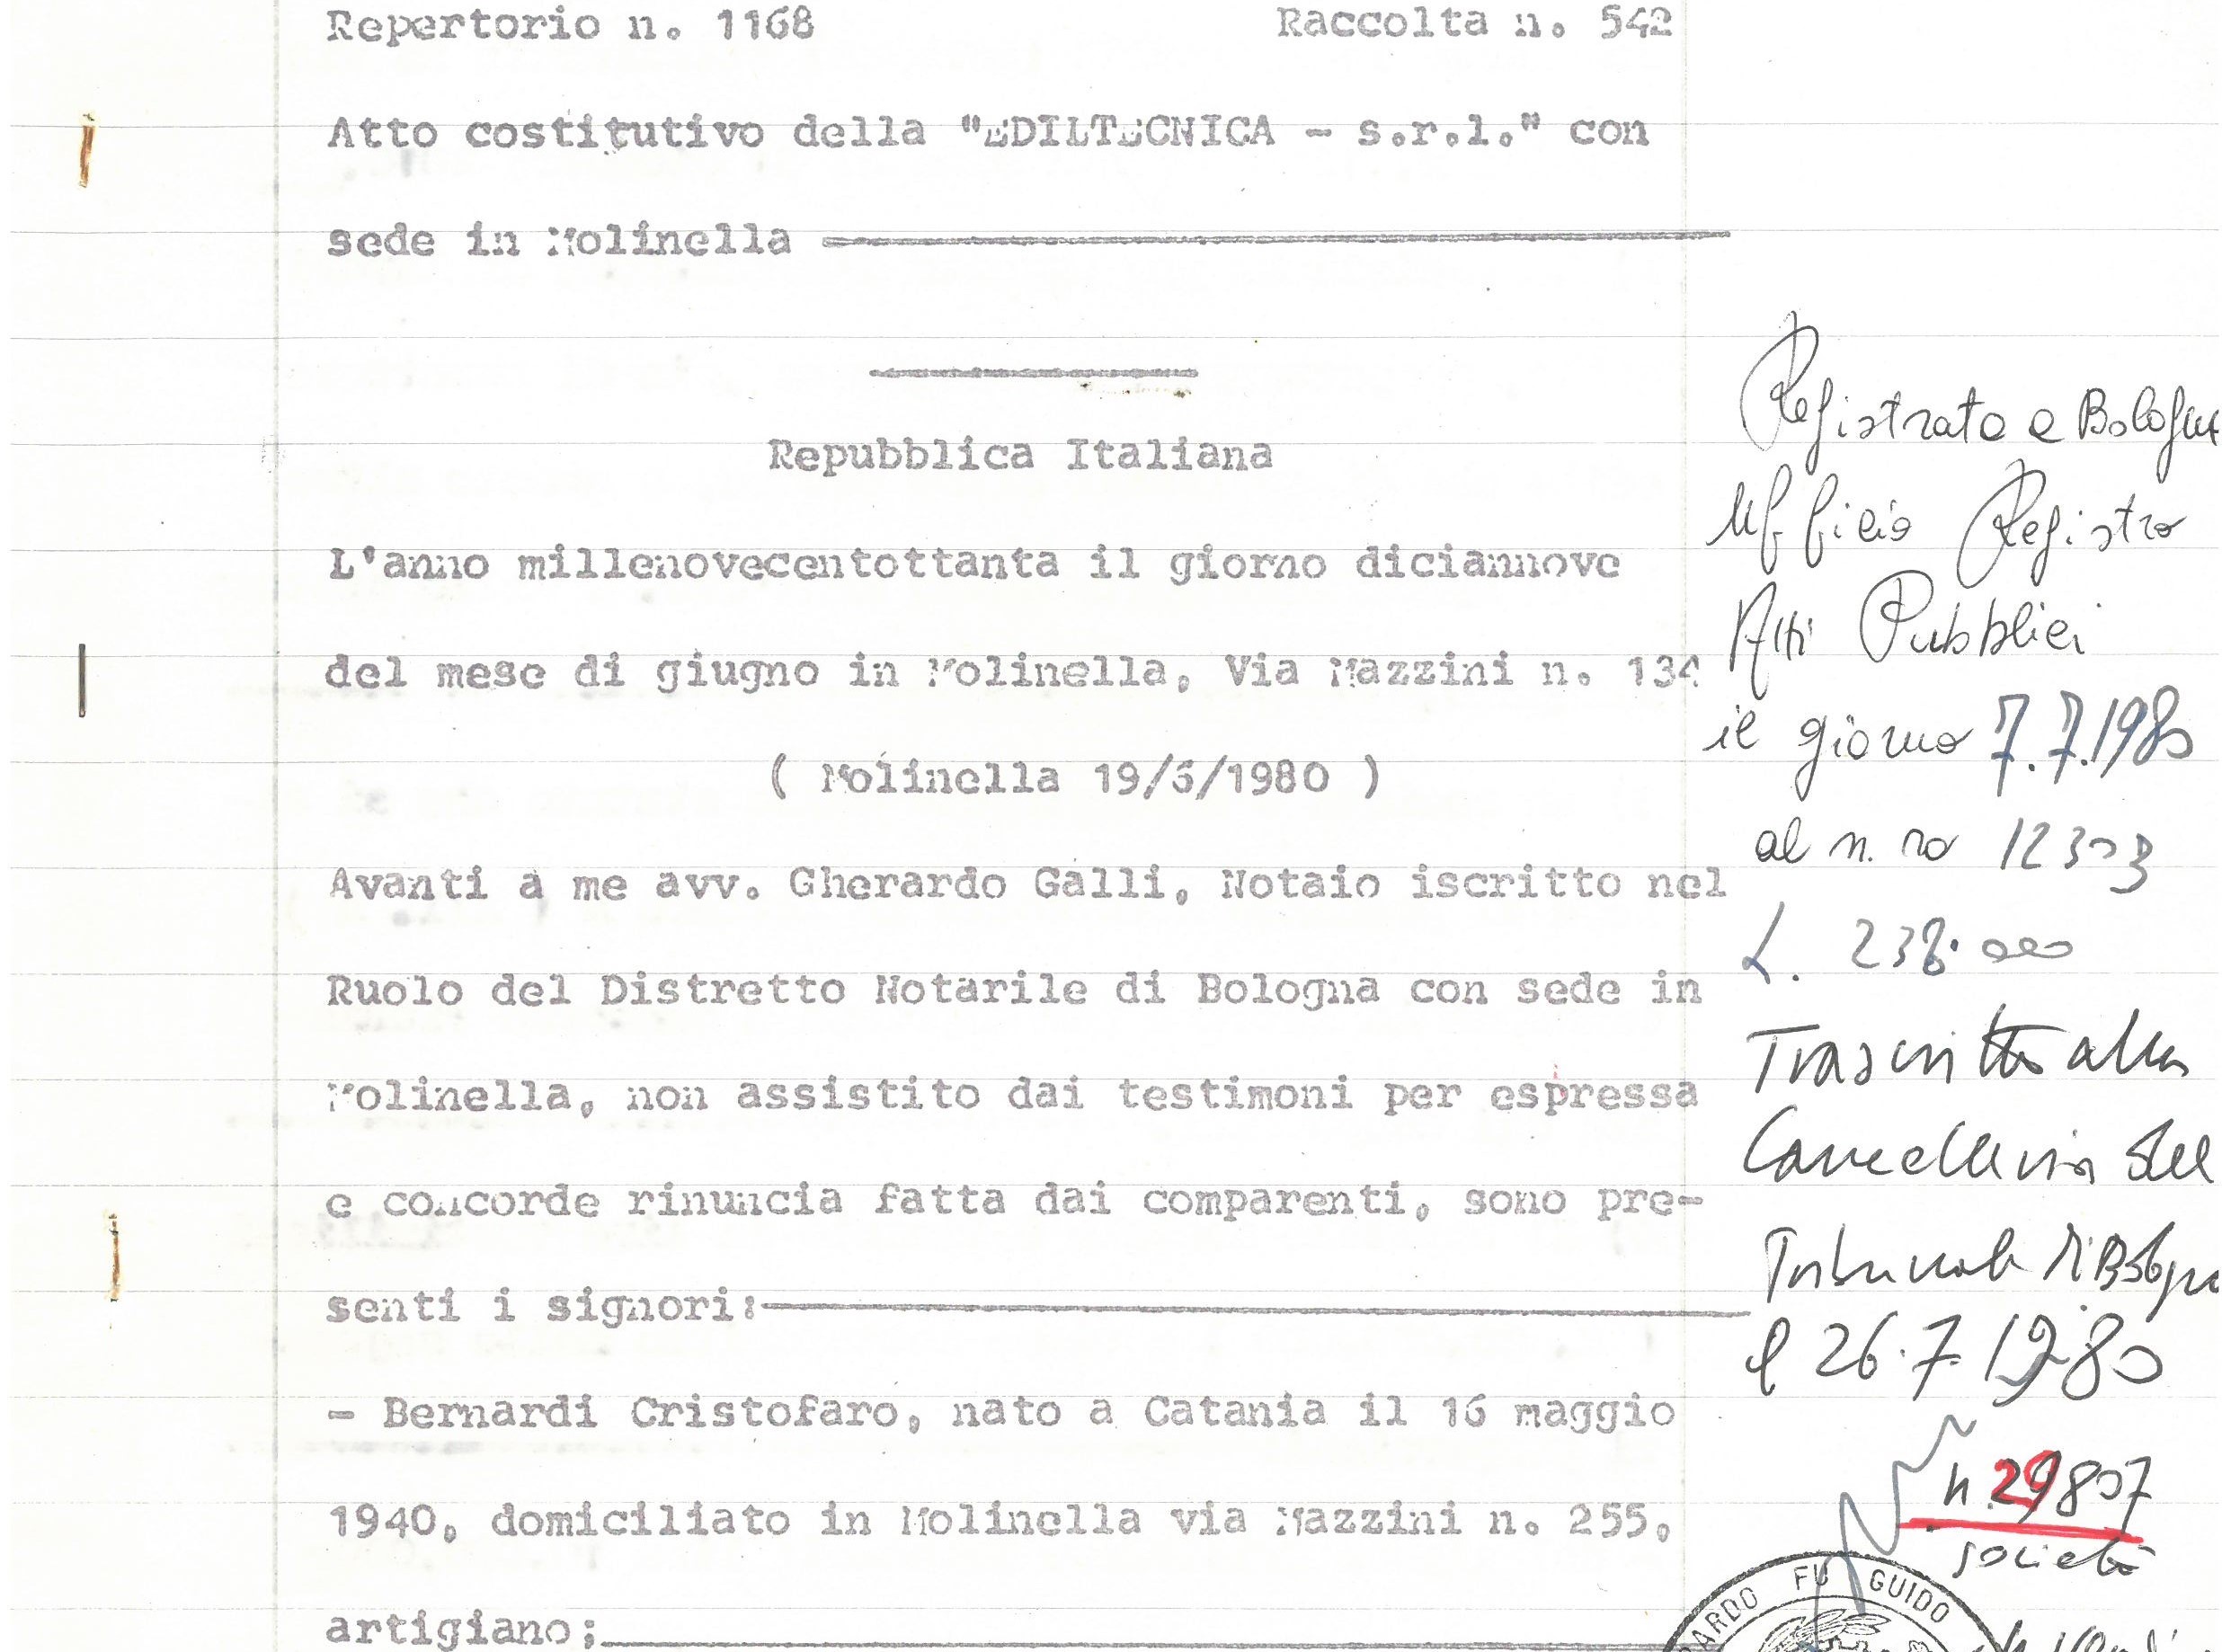 Repertorio n. 1168 Raccolta n. 542
Atto costitutivo della "EDILTECNICA - s.r.l." con
sede in Molinella
Repubblica Italiana
L'anno millenovecentottanta il giorno diciannove
del mese di giugno in Molinella, Via Mazzini n. 134
( Molinella 19/6/1980 )
Avanti a me avv. Gherardo Galli, Notaio iscritto nel
Ruolo del Distretto Notarile di Bologna con sede in
Molinella, non assistito dai testimoni per espressa
e concorde rinuncia fatta dai comparenti, sono pre-
senti i signori:
- Bernardi Cristofaro, nato a Catania il 16 maggio
1940, domiciliato in Molinella via Mazzini n. 255,
artigiano;
Registrato a Bologna
Ufficio Registro
Atti Pubblici
il giorno 7.7.1980
al n. ro 12303
L. 238.000
Trascritto alla
Cancelleria del
Tribunale di Bologna
il 26.7.1980
n. 29807
società
ARDO FU GUIDO